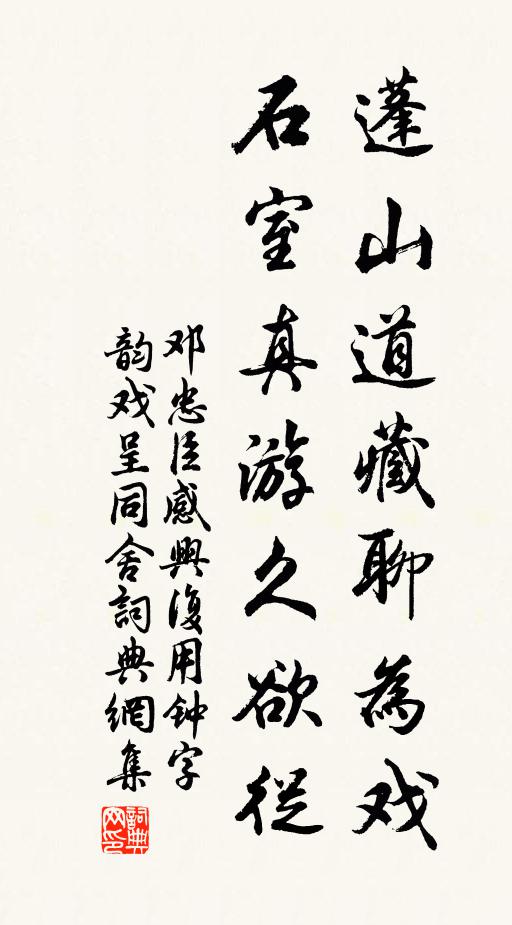 蓬山道藏聊為戏
石室真游久欲從
邓忠臣感興復用钟字
韵戏呈同舍詞典網集
詞典
网印